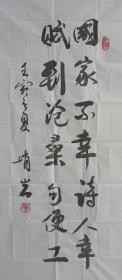 國家不幸詩人幸
賦到滄桑句便工
壬寅之夏 靖岩